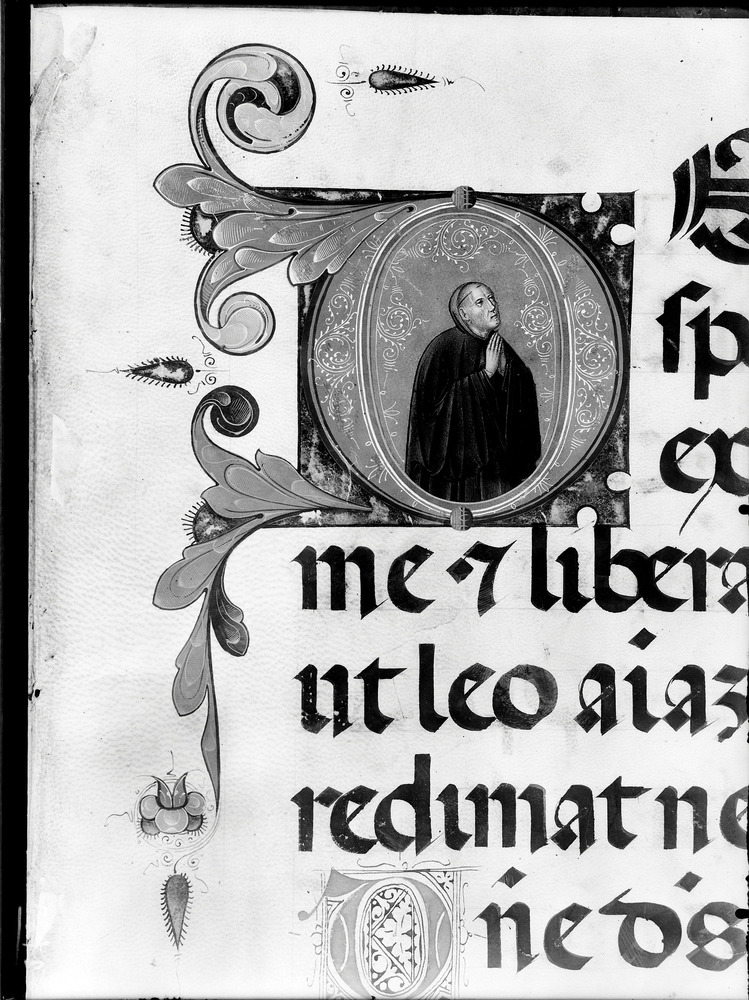 D
ſp
ex
me ⁊ libera
ut leo aiaz
redimat ne
Dn̄e d̄s